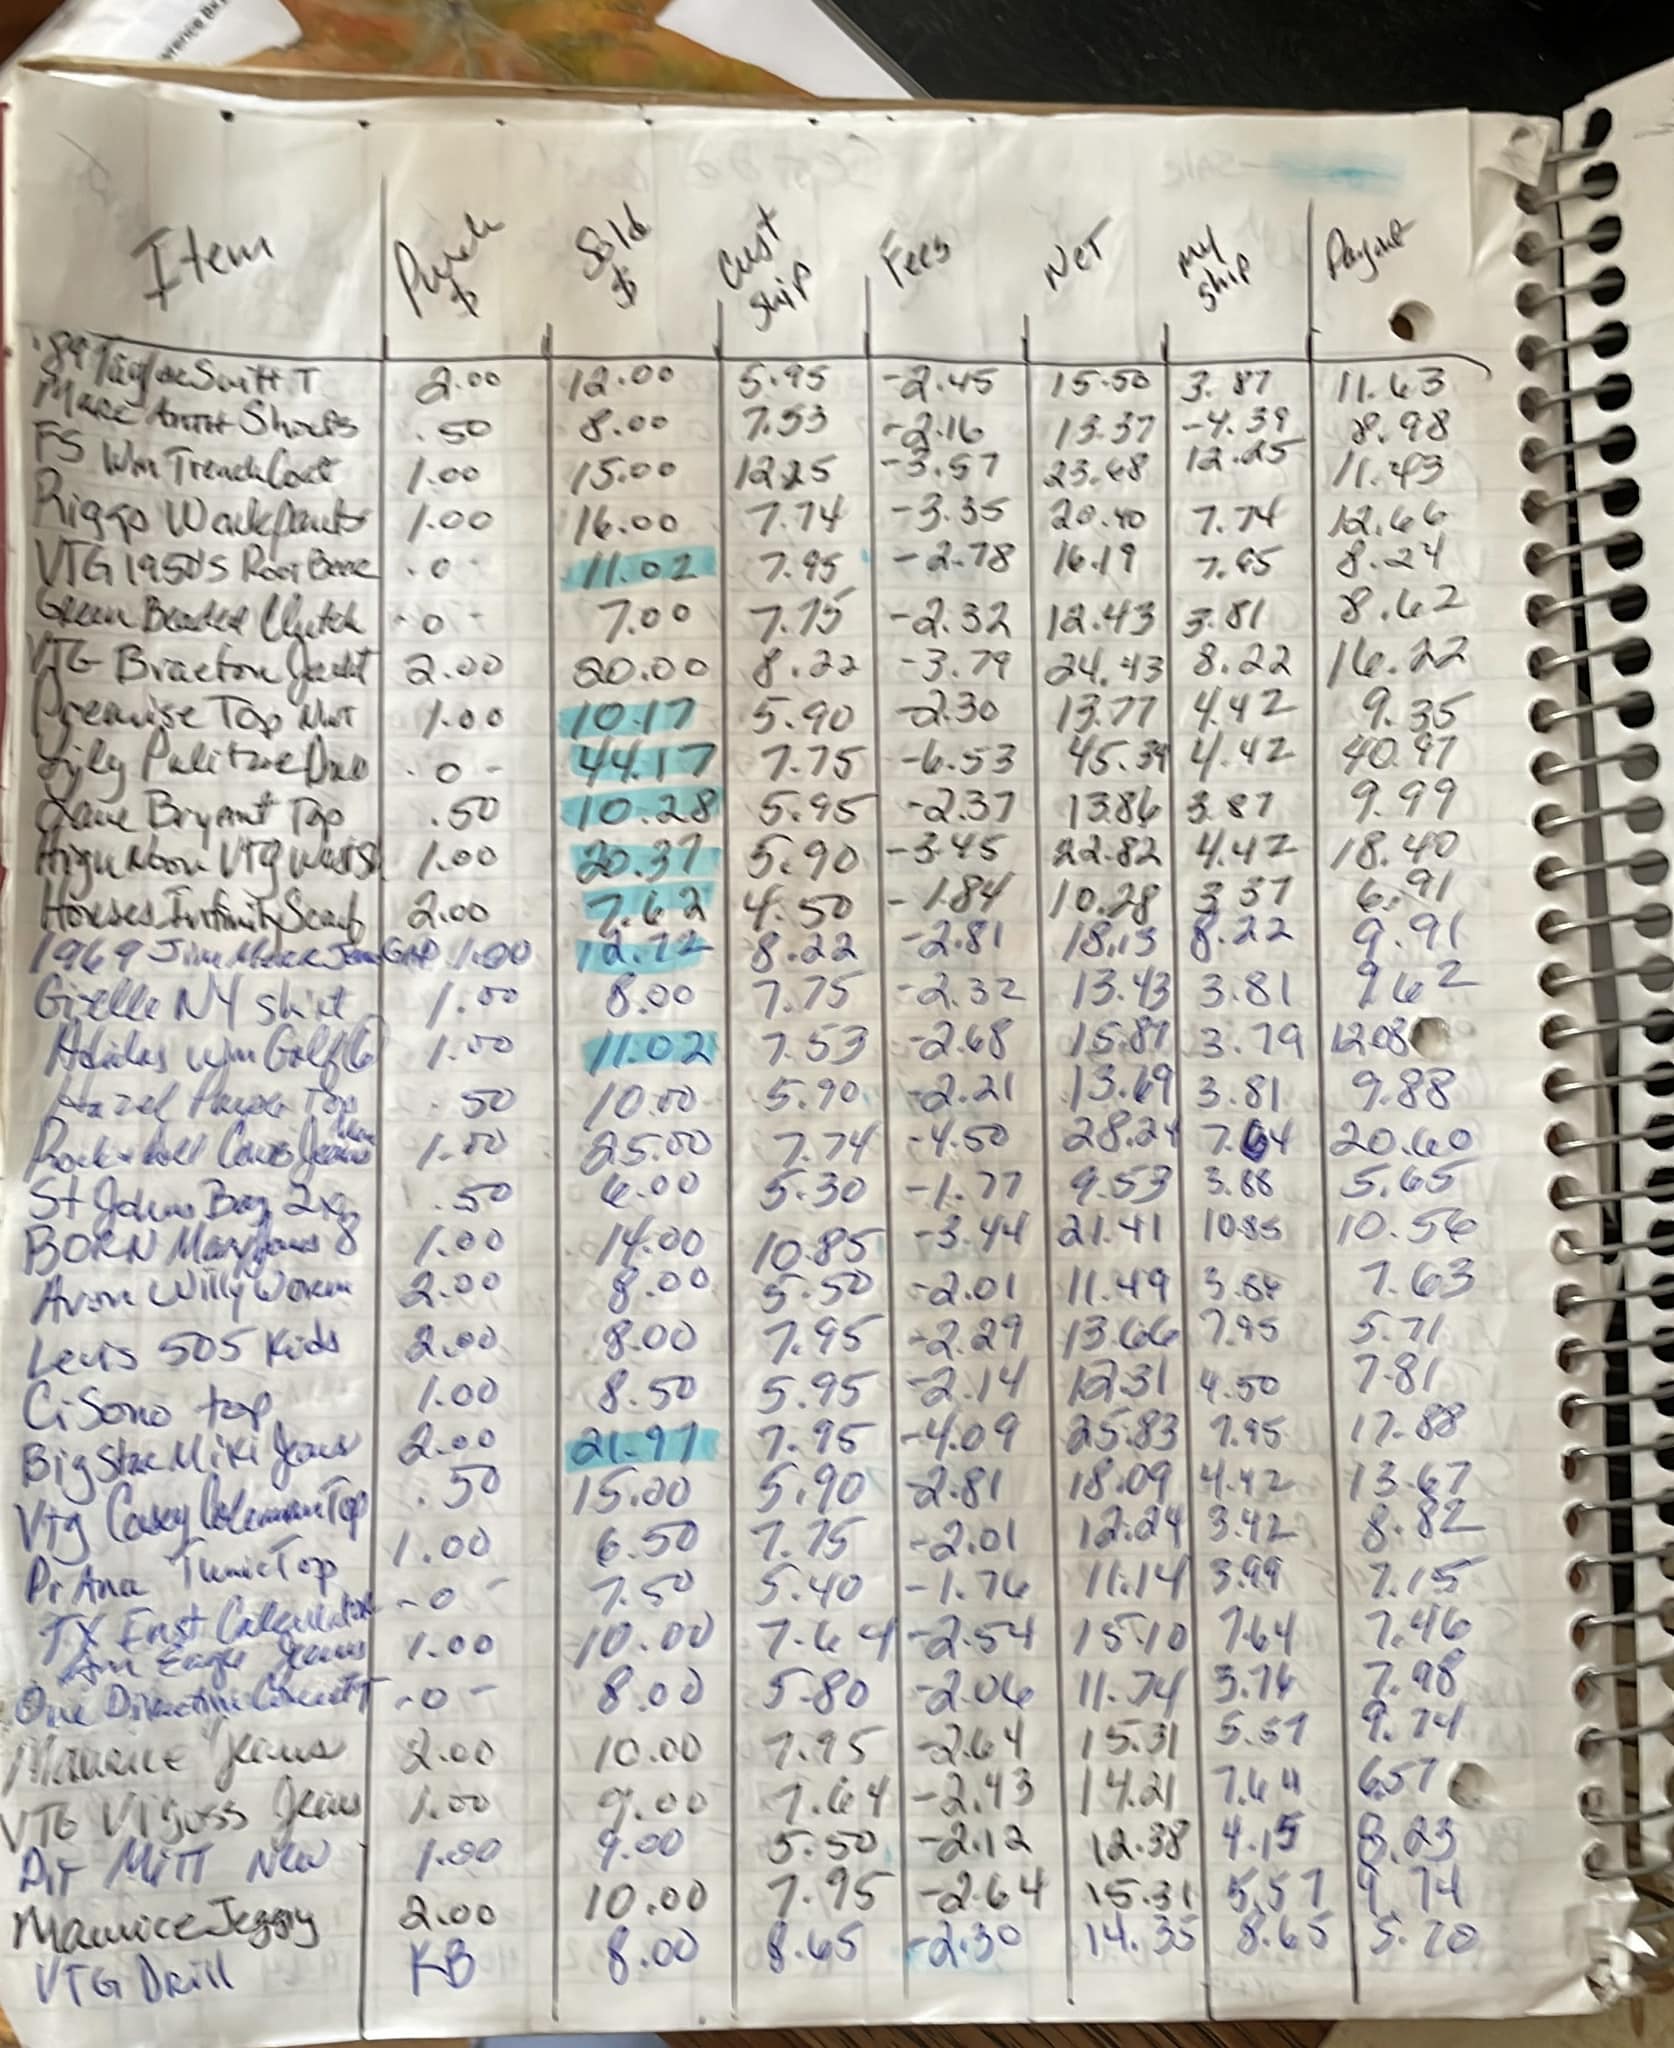 Item Purch $ Sold $ Cust ship Fees Net My ship Payout
'89 Taylor Swift T 2.00 12.00 5.95 -2.45 15.50 3.87 11.63
Shoes .50 8.00 7.53 -2.16 13.37 -4.39 8.98
FS Wm Trench Coat 1.00 15.00 12.25 -3.57 23.68 12.25 11.43
Riggs Workpants 1.00 16.00 7.74 -3.35 20.40 7.74 12.66
VTG 1950's Root Beer .0- 11.02 7.95 -2.78 16.19 7.95 8.24
Green Beaded Clutch -0- 7.00 7.75 -2.32 12.43 3.81 8.62
VTG Braeton Jackt 2.00 20.00 8.22 -3.79 24.43 8.22 16.22
Premise Top NWT 1.00 10.17 5.90 -2.30 13.77 4.42 9.35
Lily Pulitzer Dress .0- 44.17 7.75 -6.53 45.39 4.42 40.97
Lane Bryant Top .50 10.28 5.95 -2.37 13.86 3.87 9.99
High Noon VTG 1.00 20.37 5.90 -3.45 22.82 4.42 18.40
Horses Infinity Scarf 2.00 7.62 4.50 -1.84 10.28 3.37 6.91
1969 Jean GAP 1.00 12.72 8.22 -2.81 18.13 8.22 9.91
Giselle NY shirt 1.00 8.00 7.75 -2.32 13.43 3.81 9.62
Adidas wm Golf 6 1.00 11.02 7.53 -2.68 15.87 3.79 12.08
Hazel Top .50 10.00 5.90 -2.21 13.69 3.81 9.88
Rock & Roll Jeans Men 1.00 25.00 7.74 -4.50 28.24 7.64 20.60
St Johns Bay 2xg .50 6.00 5.30 -1.77 9.53 3.88 5.65
BORN Mary Janes 8 1.00 14.00 10.85 -3.44 21.41 10.85 10.56
Avon Willy Worm 2.00 8.00 5.50 -2.01 11.49 3.86 7.63
Levis 505 Kids 2.00 8.00 7.95 -2.29 13.66 7.95 5.71
Ci Sono top 1.00 8.50 5.95 -2.14 12.31 4.50 7.81
Big Star Miki Jeans 2.00 21.97 7.95 -4.09 25.83 7.95 17.88
Vtg Casey Coleman Top .50 15.00 5.90 -2.81 18.09 4.42 13.67
PrAna Tunic Top 1.00 6.50 7.75 -2.01 12.24 3.42 8.82
TX Inst Calculator -0- 7.50 5.40 -1.76 11.14 3.99 7.15
Am Eagle Jeans 1.00 10.00 7.64 -2.54 15.10 7.64 7.46
One Direction Concert T -0- 8.00 5.80 -2.06 11.74 3.76 7.98
Maurice Jeans 2.00 10.00 7.95 -2.64 15.31 5.57 9.74
VTG Vigoss Jeans 1.00 9.00 7.64 -2.43 14.21 7.64 6.57
Mitt New 1.00 9.00 5.50 -2.12 12.38 4.15 8.23
Maurice Jeggy 2.00 10.00 7.95 -2.64 15.31 5.57 9.74
VTG Drill KB 8.00 8.65 -2.30 14.35 8.65 5.70